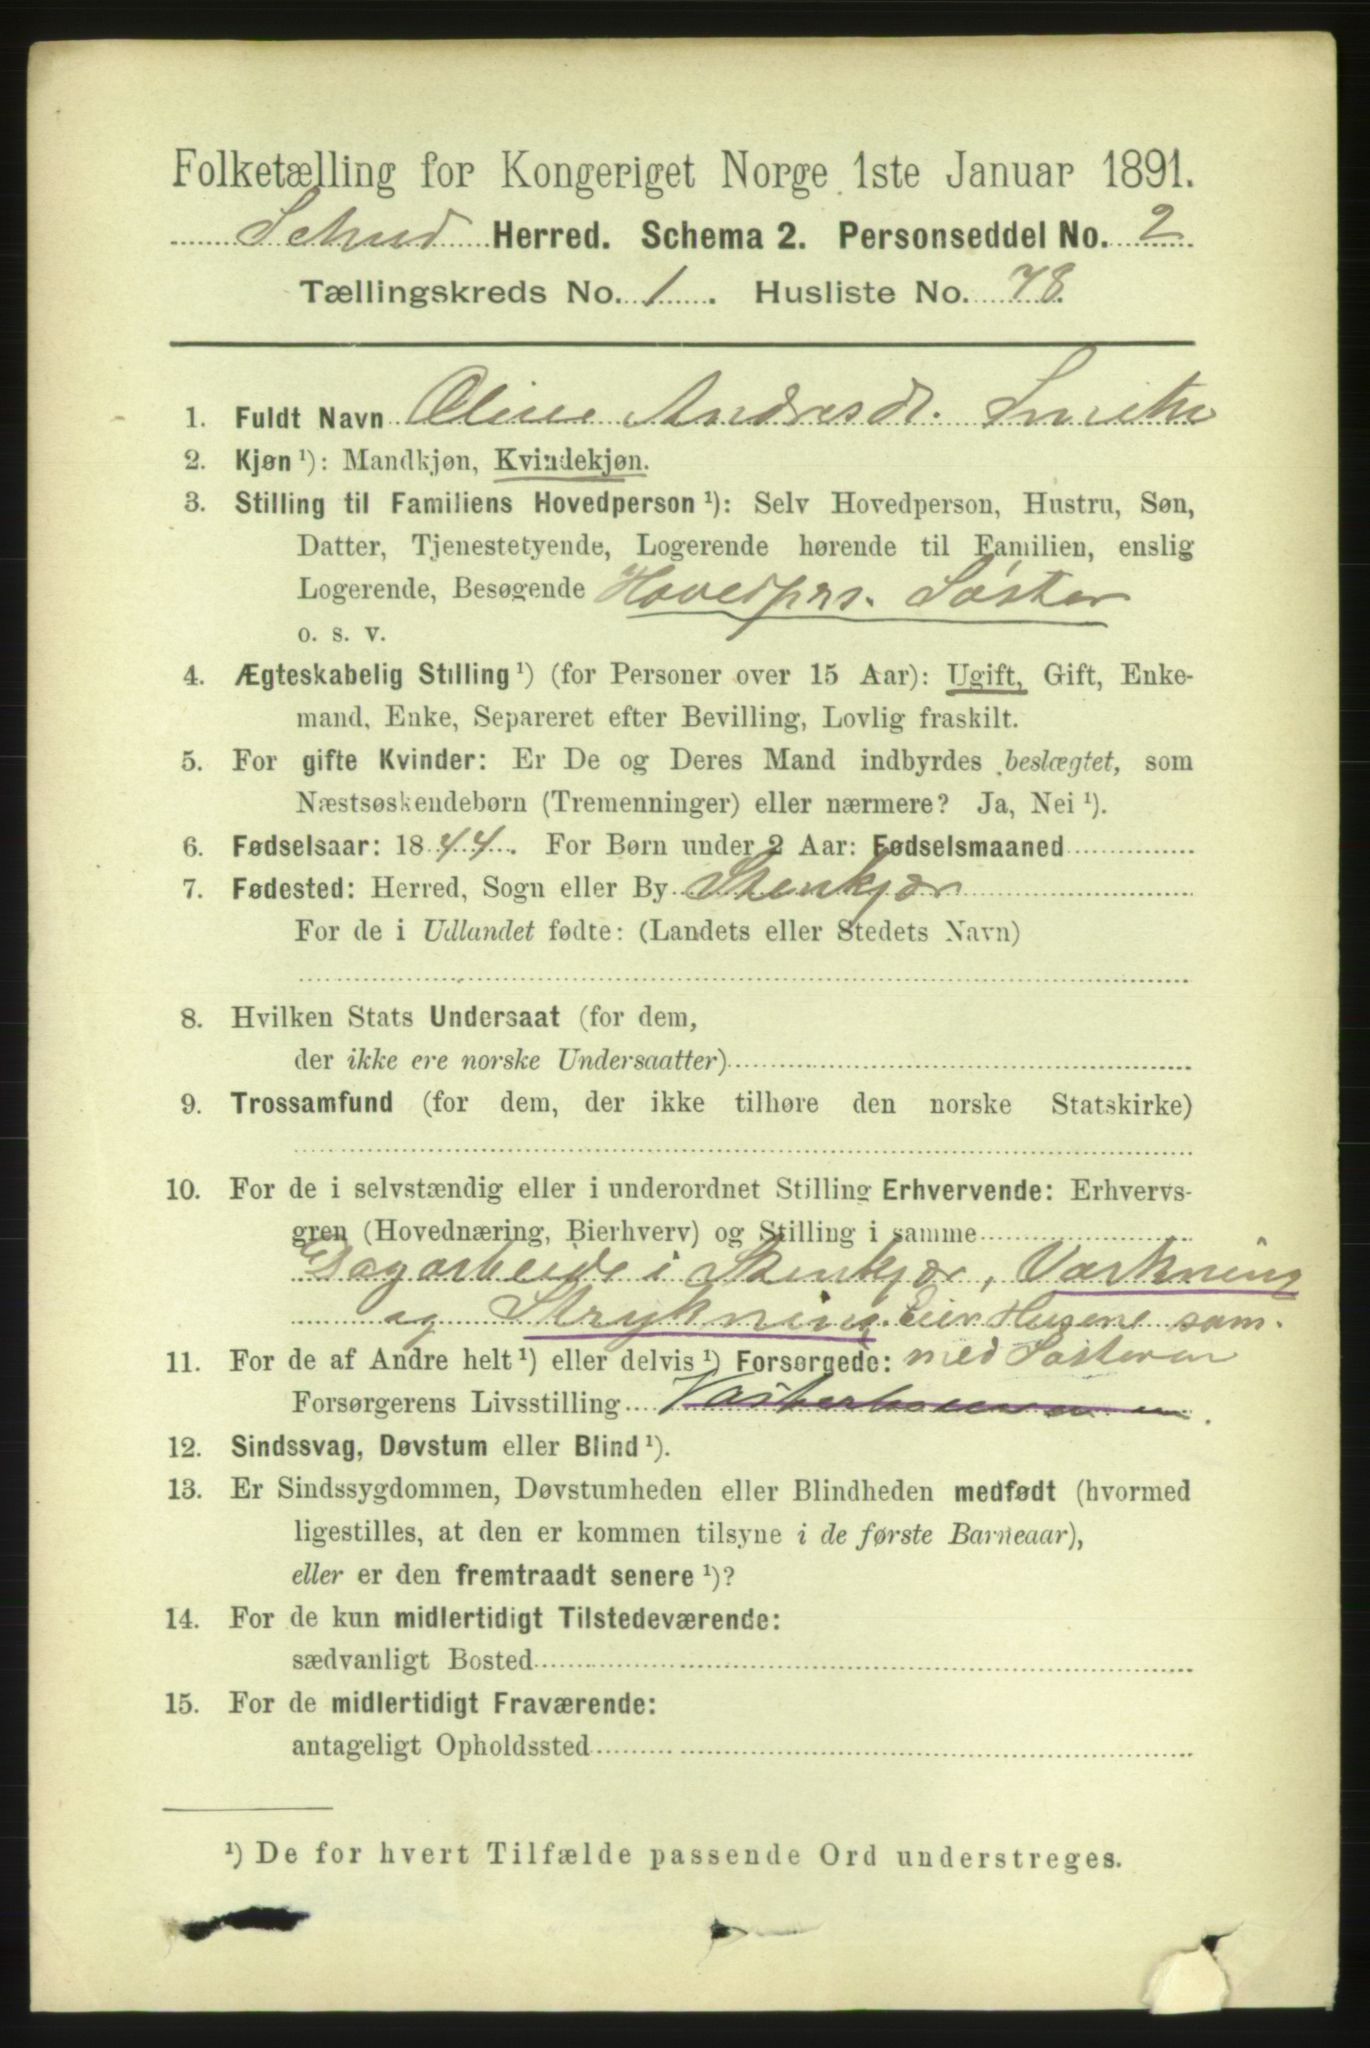 Folketælling for Kongeriget Norge 1ste Januar 1891.
Herred. Schema 2. Personseddel No. 2
Tællingskreds No. 1. Husliste No. 78.
1. Fuldt Navn Oline Andresdt.
2. Kjøn ¹): Mandkjøn, Kvindekjøn.
3. Stilling til Familiens Hovedperson ¹): Selv Hovedperson, Hustru, Søn,
Datter, Tjenestetyende, Logerende hørende til Familien, enslig
Logerende, Besøgende Hovedprs. Søster
o. s. v.
4. Ægteskabelig Stilling ¹) (for Personer over 15 Aar): Ugift, Gift, Enke-
mand, Enke, Separeret efter Bevilling, Lovlig fraskilt.
5. For gifte Kvinder: Er De og Deres Mand indbyrdes beslægtet, som
Næstsøskendebørn (Tremenninger) eller nærmere? Ja, Nei ¹).
6. Fødselsaar: 1844. For Børn under 2 Aar: Fødselsmaaned
7. Fødested: Herred, Sogn eller By Stenkjær
For de i Udlandet fødte: (Landets eller Stedets Navn)
8. Hvilken Stats Undersaat (for dem,
der ikke ere norske Undersaatter)
9. Trossamfund (for dem, der ikke tilhøre den norske Statskirke)
10. For de i selvstændig eller i underordnet Stilling Erhvervende: Erhvervs-
gren (Hovednæring, Bierhverv) og Stilling i samme
Dagarbeide i Stenkjær, Vaskning
og Strykning. Eier Husene sam-
11. For de af Andre helt ¹) eller delvis ¹) Forsørgede: med Søsteren
Forsørgerens Livsstilling
12. Sindssvag, Døvstum eller Blind ¹).
13. Er Sindssygdommen, Døvstumheden eller Blindheden medfødt (hvormed
ligestilles, at den er kommen tilsyne i de første Barneaar),
eller er den fremtraadt senere ¹)?
14. For de kun midlertidigt Tilstedeværende:
sædvanligt Bosted
15. For de midlertidigt Fraværende:
antageligt Opholdssted
¹) De for hvert Tilfælde passende Ord understreges.